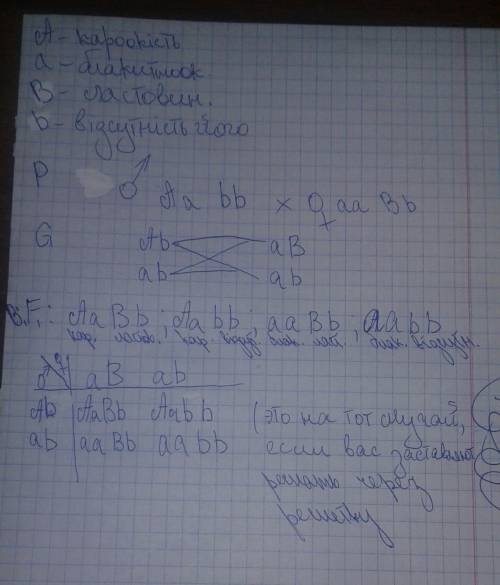 A - кароокість
a - блакитноок.
B - ластовин.
b - відсутність його
P ♂ Aa bb × ♀ aa Bb
G Ab aB
ab ab
В: F₁: AaBb ; Aabb ; aaBb ; aabb
кар. ластов. ; кар. відсут. ; блак. ласт. ; блак. відсутн.
♂ ♀ aB ab
Ab AaBb Aabb (это на тот случай,
ab aaBb aabb если вас заставляют
решать через
решетку